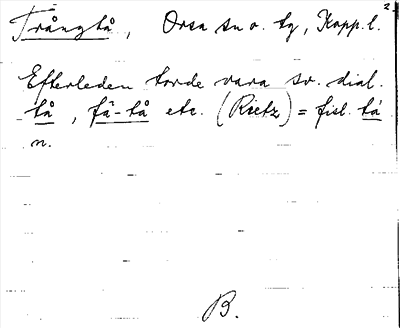 Trångtå, Orsa sn o. tg, Kopp. l. 2.
Efterleden torde vara sv. dial.
tå, fä-tå etc. (Rietz) = fisl. tá
n.
B.